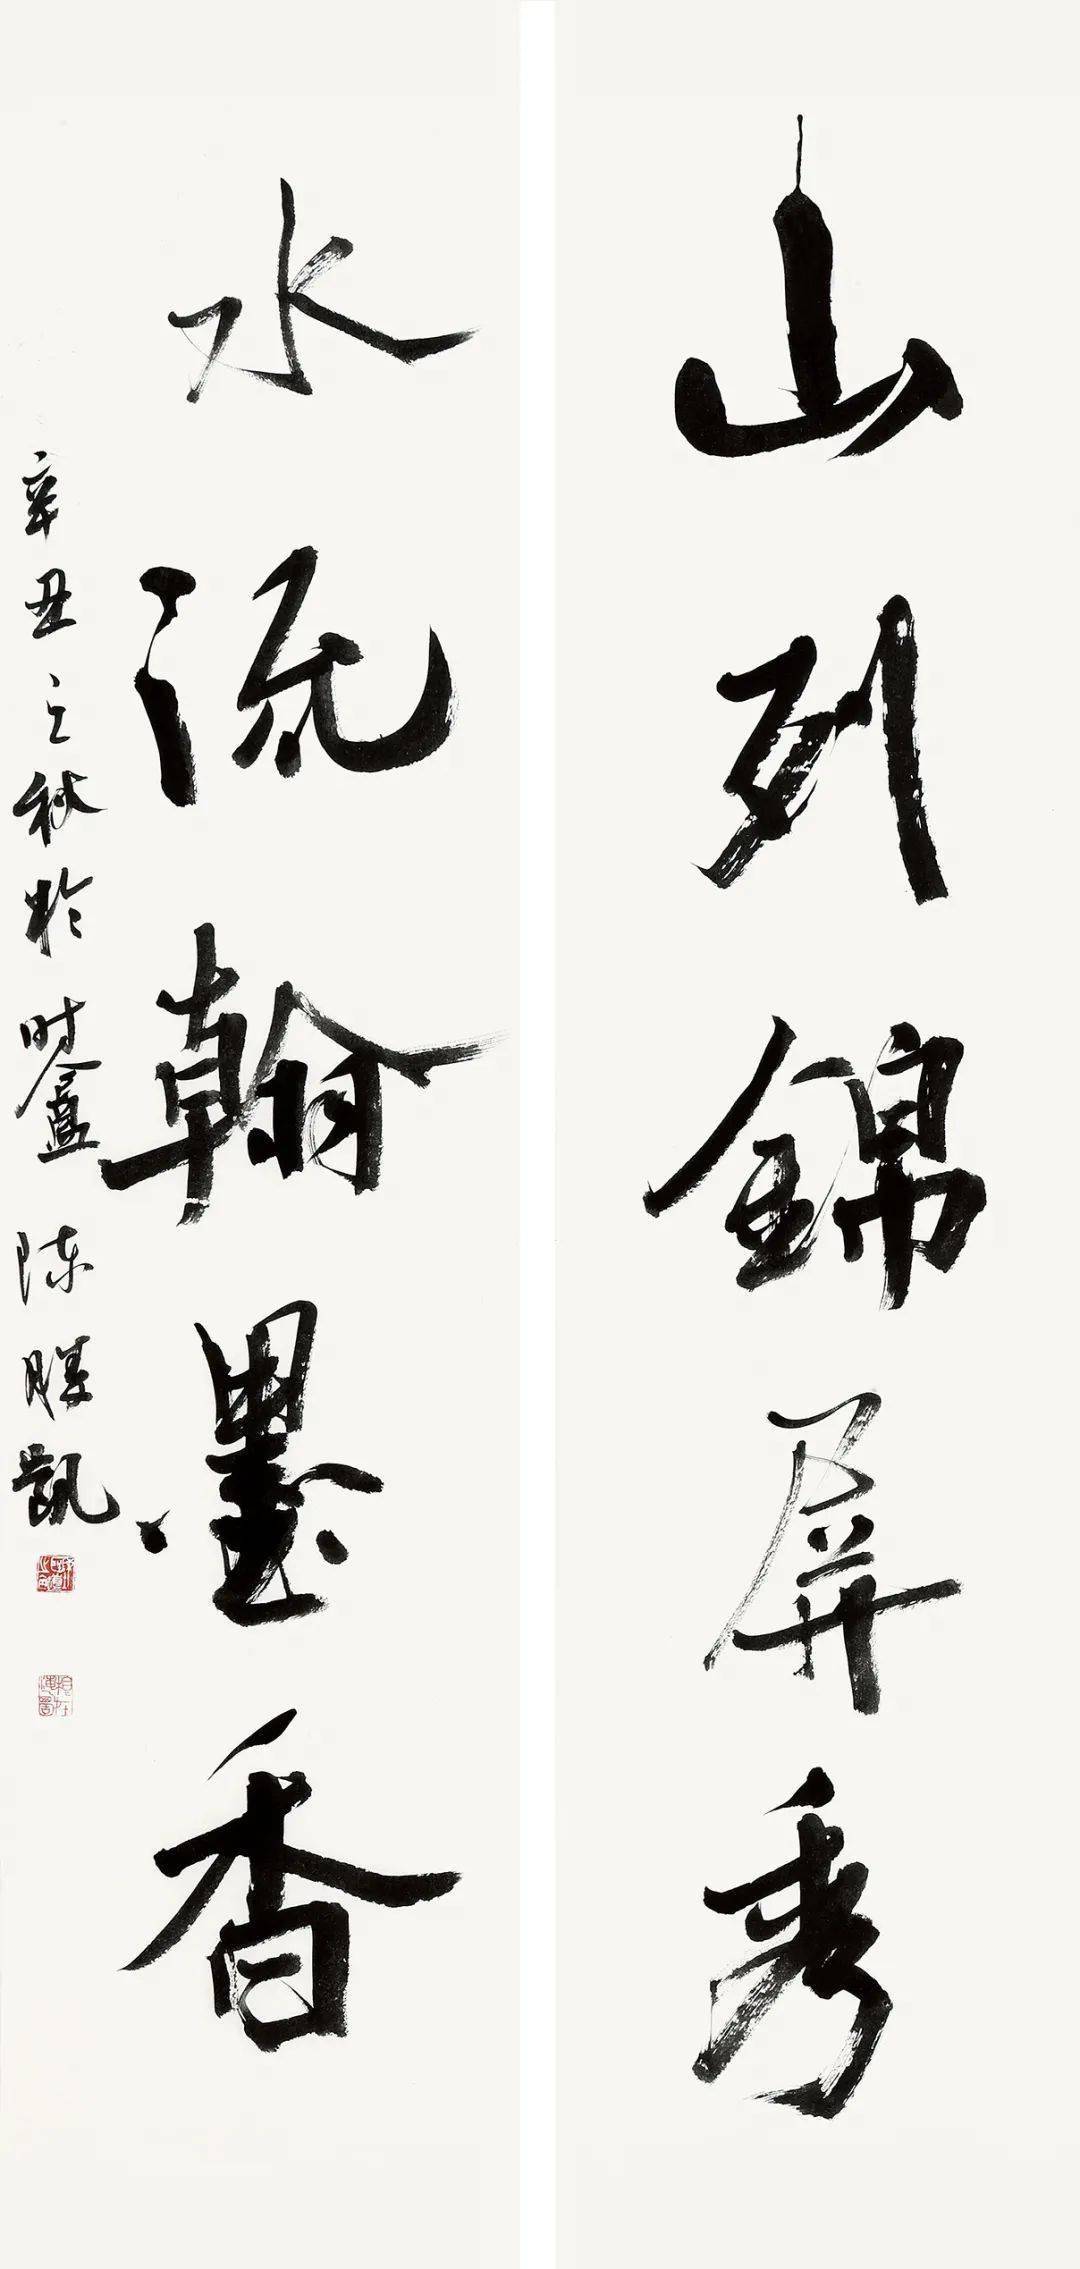 山列錦屏秀
水流翰墨香
辛丑之秋於時盦陳勝凱